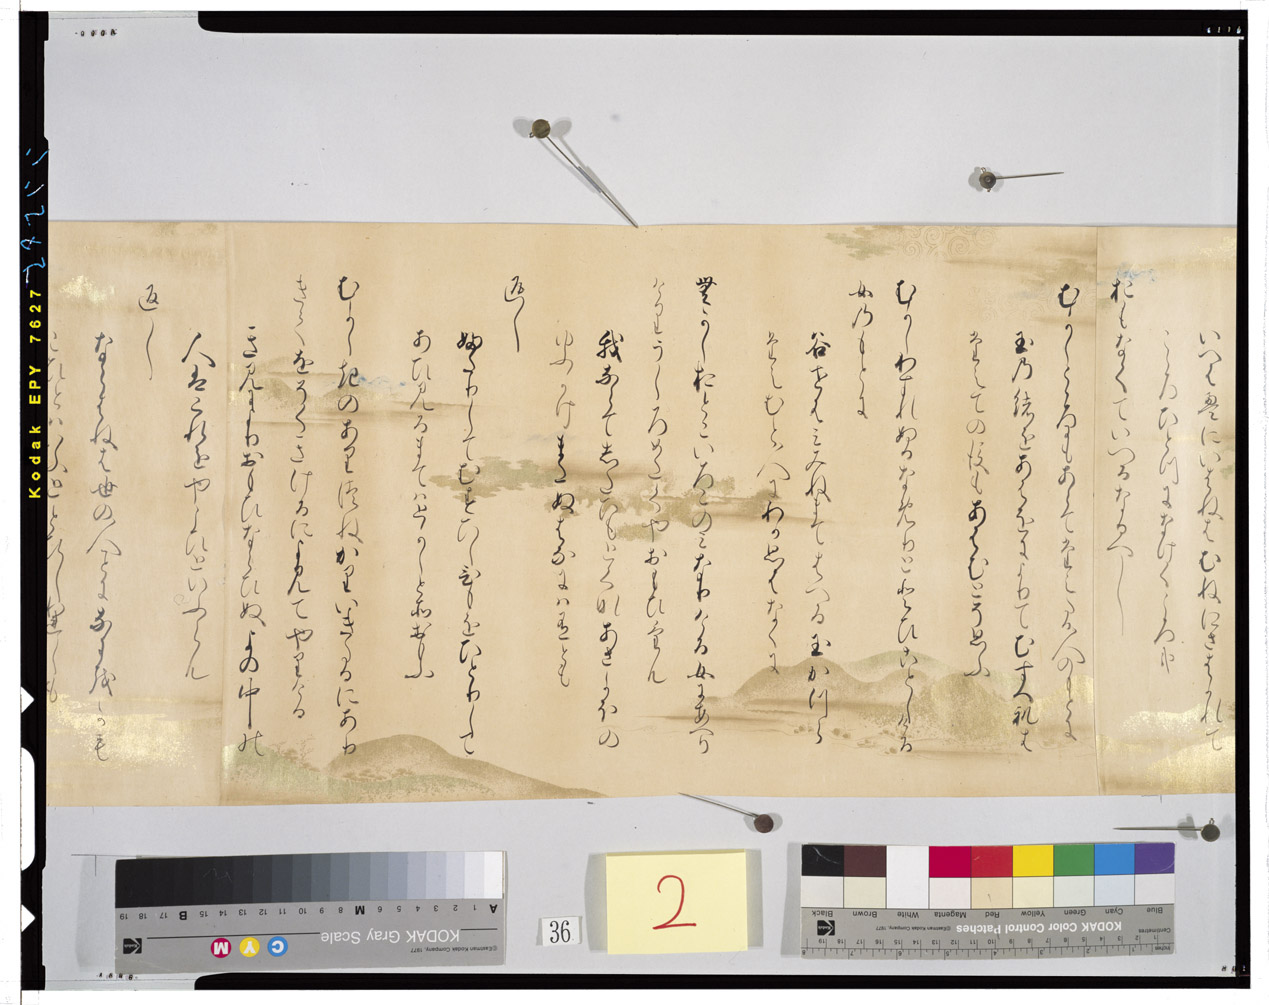 いへは盈にいはねはむねにさはかれて
こゝろひとつになけくころかな
おもなくていへるなるへし
むかしこゝろにもあらてたえたる人のもとに
玉乃緒をあはをによりてむすへれは
たえての後もあはむとそ思ふ
むかしわすれぬるなめりとゝひことしける
女乃もとに
谷せはみみねまてはへる玉かつら
たえむと人にわか思はなくに
無かしおとこいろこのみなりける女にあへり
うしろめたくやおもひけん
我ならてしたひもとくなあさかほの
ゆふかけまたぬはなにはありとも
返し
してむすひしひもをひとりして
あひみるまてはとかしとそおもふ
むかし紀のありつねかりいきたるにありき
てをそくきけるによみてやりける
きみによりおもひならひぬよの中の
人はこれをやこひといふらん
返し
ならはねは世の人ことになにをかも
こひとはいふとゝひし我しも
Kodak EPY 7627
2
36
KODAK Gray Scale
©Eastman Kodak Company, 1977
C Y M
A 1 2 3 4 5 6 M 8 9 10 11 12 13 14 15 B 17 18 19
KODAK Color Control Patches
©Eastman Kodak Company, 1977
Blue Cyan Green Yellow Red Magenta White Brown Black
Kodak
Inches
Centimetres